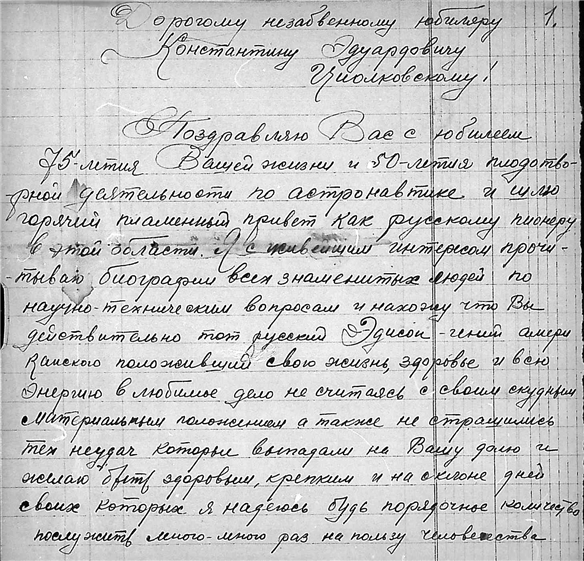 Дорогому незабвенному юбиляру 1.
Константину Эдуардовичу
Циолковскому!
Поздравляю Вас с юбилеем
75-летия Вашей жизни и 50-летия плодотво-
-рной деятельности по астронавтике и шлю
горячий пламенный привет как русскому пионеру
в этой области. Я с живейшим интересом прочи-
-тываю биографии всех знаменитых людей по
научно-техническим вопросам и нахожу что Вы
действительно тот русский Эдисон - гений амери
канского положивший свою жизнь, здоровье и всю
энергию в любимое дело не считаясь с своим скудным
материальным положением а также не страшились
тех неудач которые выпадали на Вашу долю и
желаю быть здоровым, крепким и на склоне дней
своих которых я надеюсь будь порядочное количество
послужить много-много раз на пользу человечества